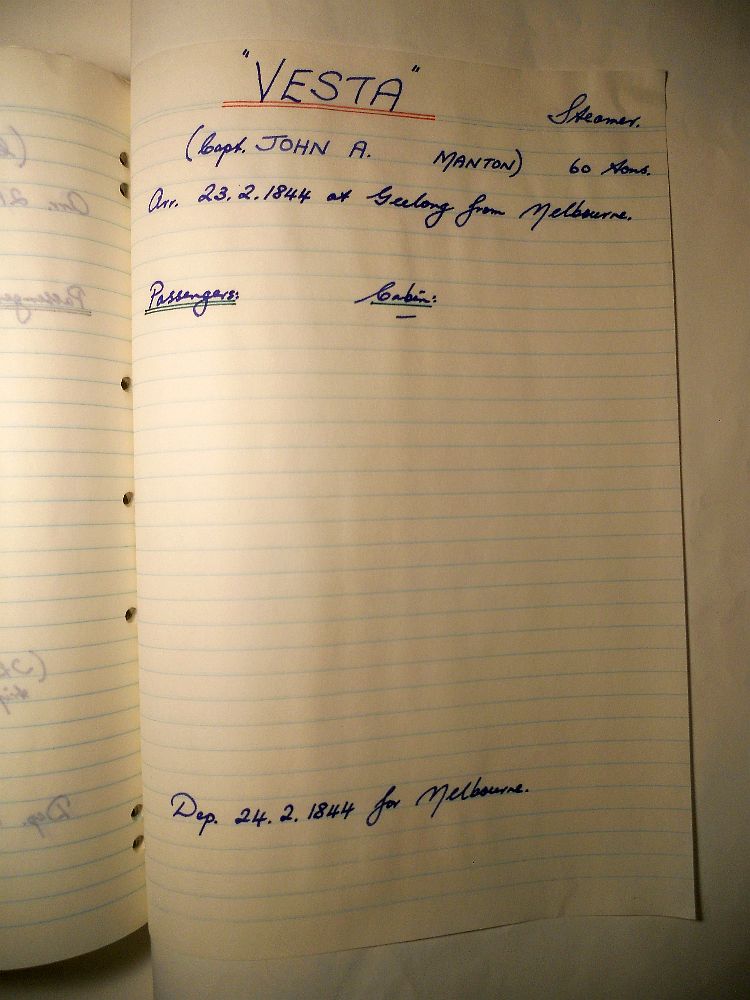 "VESTA"
Steamer.
(Capt. JOHN A. MANTON) 60 tons.
Arr. 23.2.1844 at Geelong from Melbourne.
Passengers: Cabin:
Dep. 24.2.1844 for Melbourne.